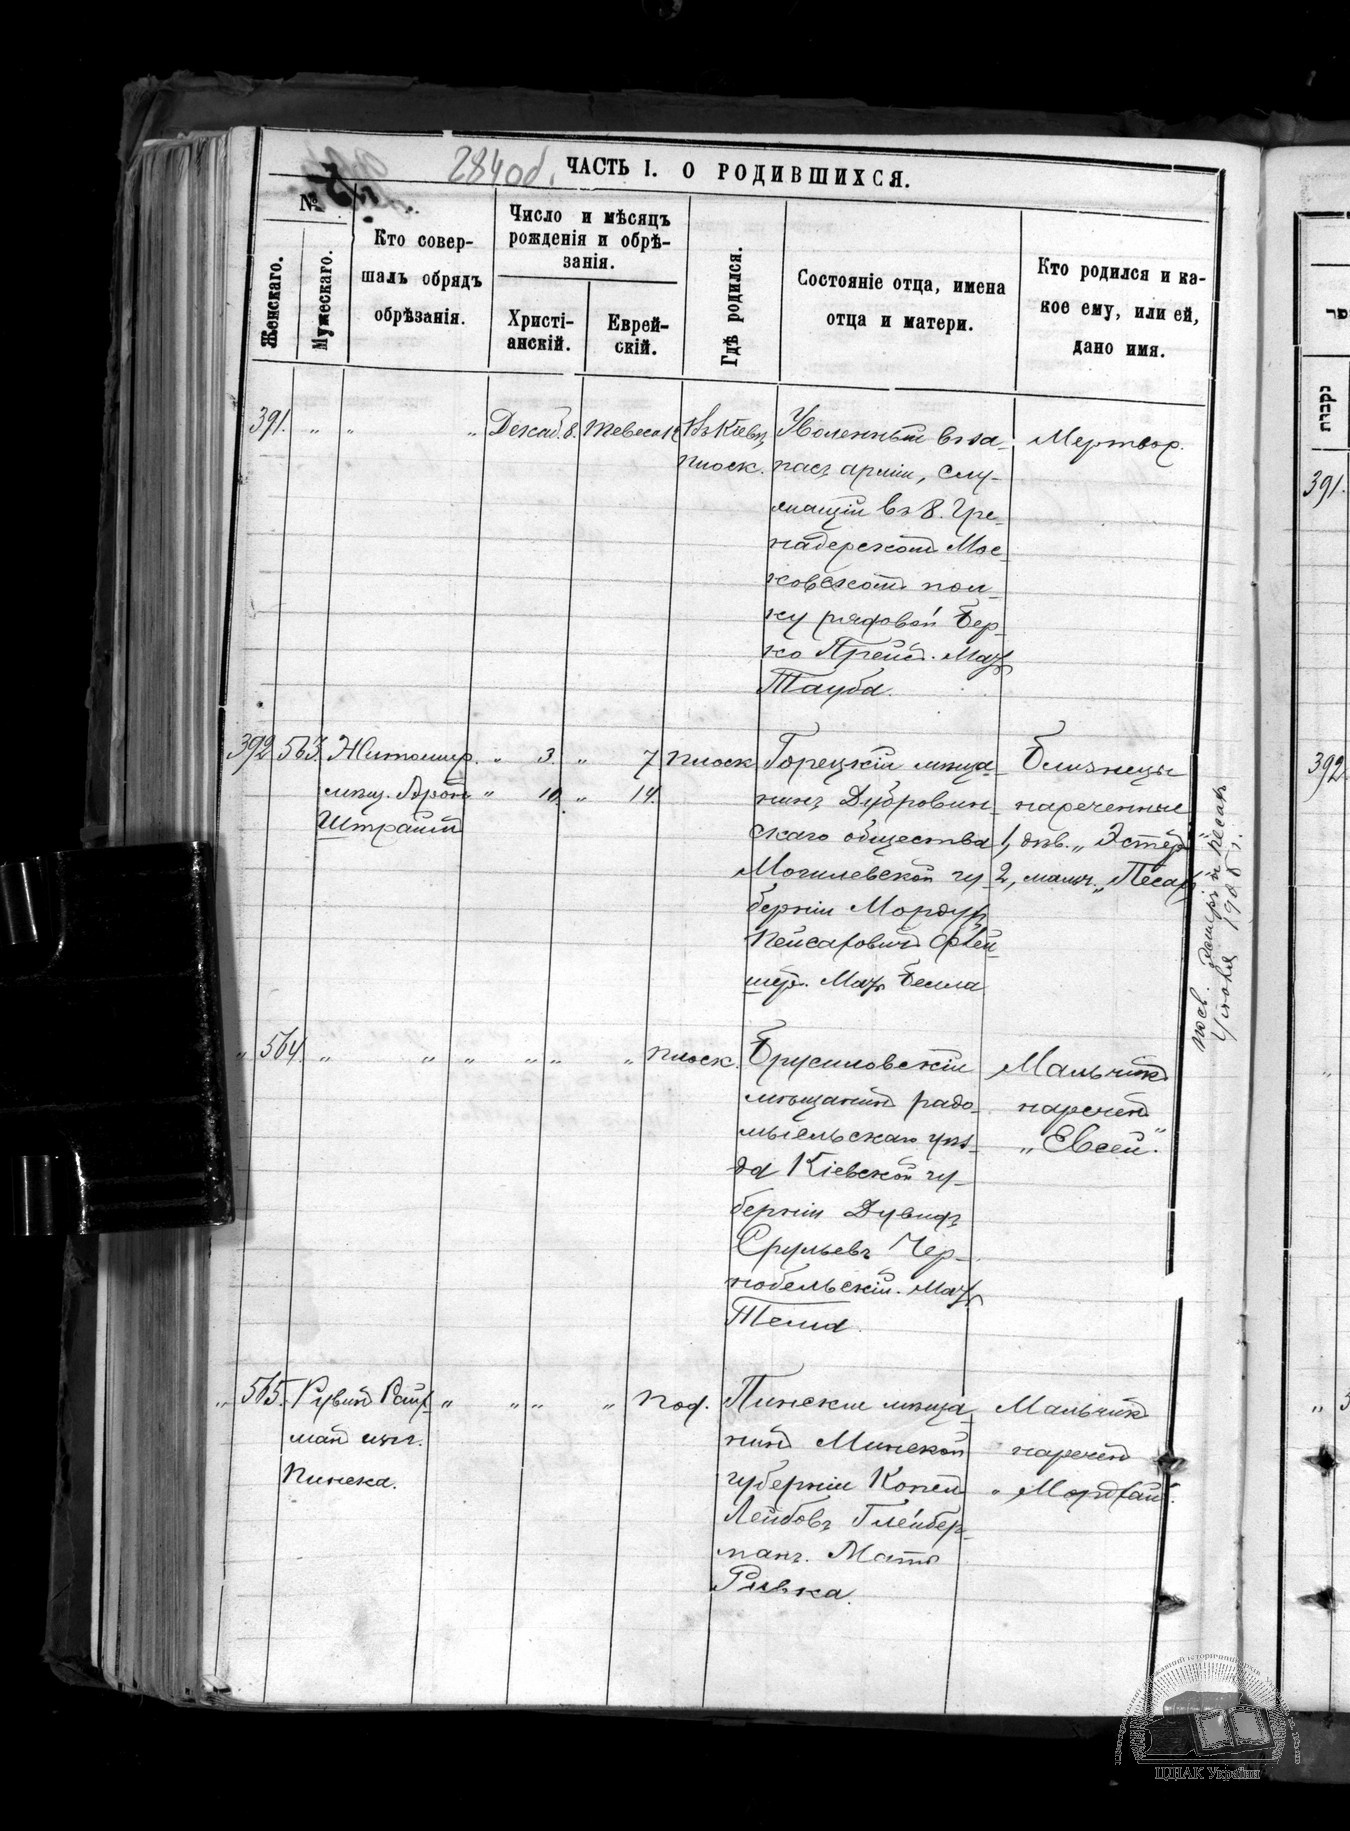 284об.
ЧАСТЬ I. О РОДИВШИХСЯ.
№
Женскаго.
Мужескаго.
Кто совер-
шалъ обрядъ
обрѣзанія.
Число и мѣсяцъ
рожденія и обрѣ-
занія.
Христі-
анскій.
Еврей-
скій.
Гдѣ родился.
Состояніе отца, имена
отца и матери.
Кто родился и ка-
кое ему, или ей,
дано имя.
391. „ „ „ Декаб. 8. Тевеса
Въ Кіевѣ
плоск.
Уволенный въ за-
пасъ арміи, слу-
жащій въ 8. Гре-
надерскомъ Мос-
ковскомъ пол-
ку рядовой Бер-
ко
Тауба.
Мертвор.
392 563. Житомир.
мѣщ. Арон
Штрайм
„ 3. „ 7
„ 10. „ 14.
плоск
Горецкій мѣща-
нинъ Дубровин-
скаго общества
Могилевской гу-
берніи Мордух
Пейсахович Флей-
шер. Мат. Бейла
Близнецы
нареченные
1, дѣв. „Эстер„
2, мальч. „Песах„
4 іюля 1908 г.
„ 564. „ „ „ „ „ „ плоск.
Брусиловскій
мѣщанин радо-
мысльскаго уѣз-
да Кіевской гу-
берніи Дувидъ
Срульевъ Чер-
нобельскій. Мат.
Мальчик
наречен
„Евсей„
„ 565. Рувин
ман мѣщ.
Пинска.
„ „ „ „ под.
Пинскій мѣща-
нин Минской
губерніи Копел
Лейбовъ Глейбер-
манъ. Мать
Ривка.
Мальчик
наречен
„Мордхай„
391.
392.
ЦДІАК України